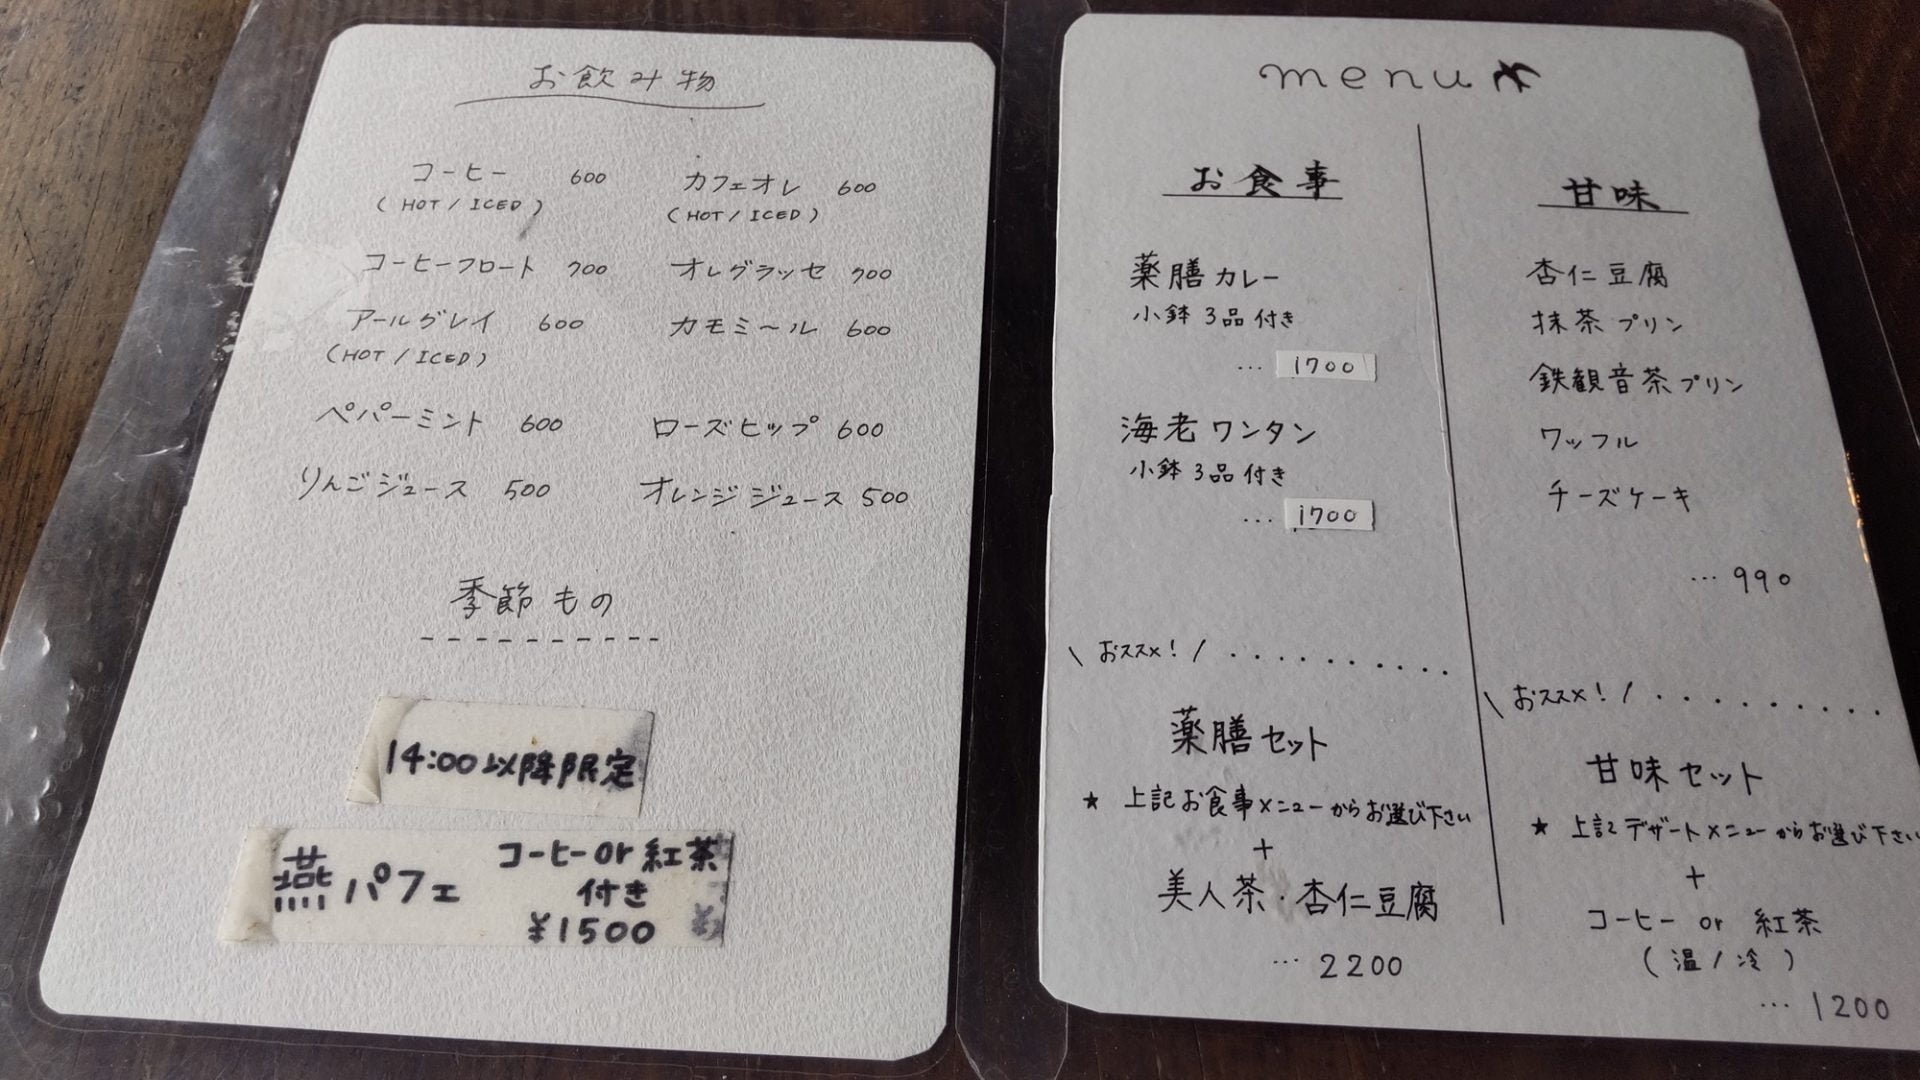 お飲み物
コーヒー 600 カフェオレ 600
(HOT / ICED) (HOT / ICED)
コーヒーフロート 700 オレグラッセ 700
アールグレイ 600 カモミール 600
(HOT / ICED)
ペパーミント 600 ローズヒップ 600
りんごジュース 500 オレンジジュース 500
季節もの
14:00以降限定
燕パフェ コーヒーor紅茶
付き
¥1500
menu
お食事
薬膳カレー
小鉢3品付き
… 1700
海老ワンタン
小鉢3品付き
… 1700
\ おススメ! / ..........
薬膳セット
★ 上記お食事メニューからお選び下さい
+
美人茶・杏仁豆腐
… 2200
甘味
杏仁豆腐
抹茶プリン
鉄観音茶プリン
ワッフル
チーズケーキ
… 990
\ おススメ! / .........
甘味セット
★ 上記デザートメニューからお選び下さい
+
コーヒー or 紅茶
(温/冷)
… 1200